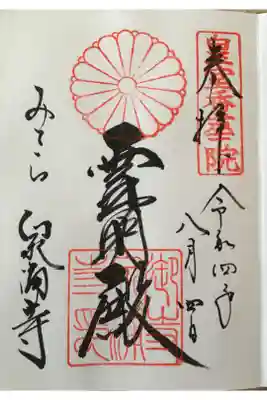 奉拝
令和四年
八月四日
霊明殿
みてら
泉涌寺